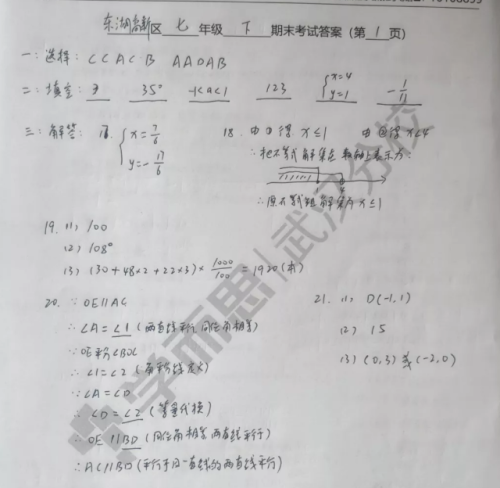 东湖高新区 七 年级 下 期末考试答案(第 1 页)
一:选择: C C A C B A A D A B
二:填空: 3 35° -1<a<1 123 {x=4 y=1 -1/11
三:解答: 17. {x=7/6 y=-17/6 18. 由①得 x≤1 由②得 x<4
∴把不等式解集在数轴上表示为:
∴原不等式组解集为 x≤1
19. (1) 100
(2) 108°
(3) (30+48×2+22×3)× 1000/100 =1920(本)
20. ∵OE∥AC 21. (1) D(-1,1)
∴∠A=∠1(两直线平行同位角相等) (2) 15
∵OE平分∠BOC (3) (0,3)或(-2,0)
∴∠1=∠2(角平分线定义)
∵∠A=∠D
∴∠D=∠2(等量代换)
∴OE∥BD(同位角相等两直线平行)
∴AC∥BD(平行于同一直线的两直线平行)
学而思|武汉分校